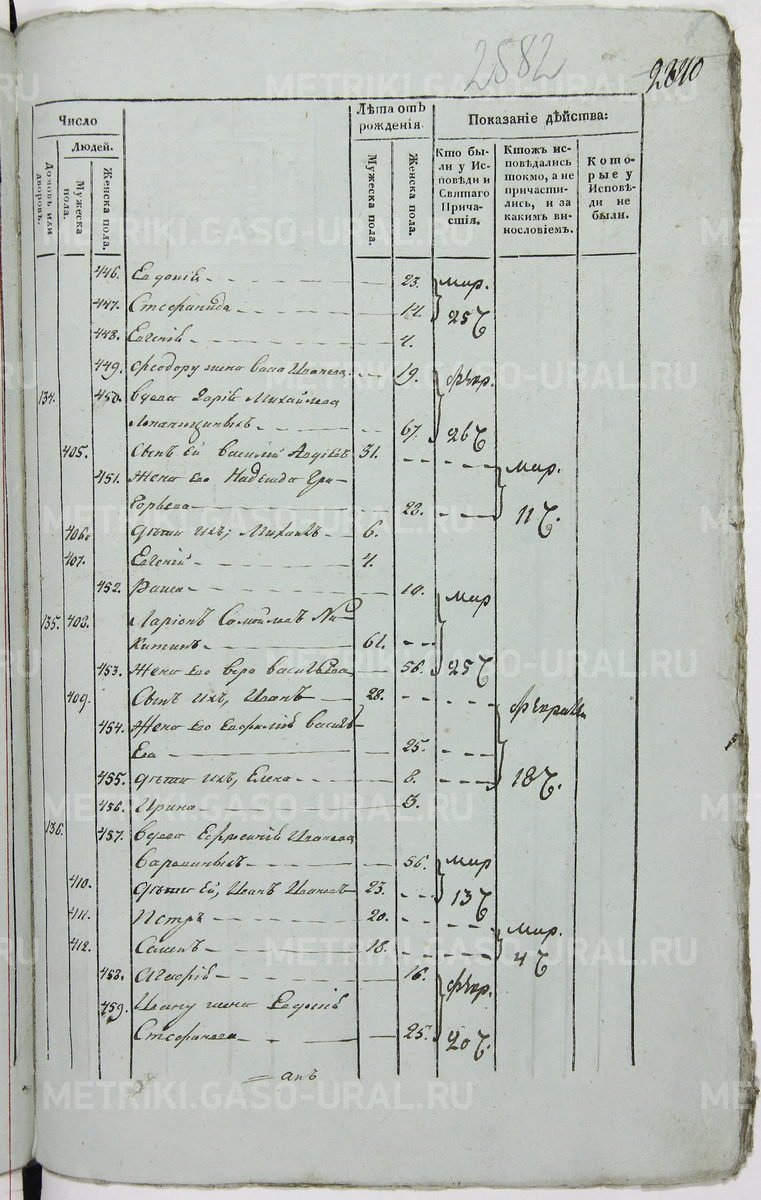 2582
2340
Число
Людей.
Домовъ или дворовъ.
Мужеска пола.
Женска пола.
Лѣта отъ рожденія.
Мужеска пола.
Женска пола.
Показаніе дѣйства:
Кто бы-
ли у Ис-
повѣди и
Святаго
Прича-
стія.
Ктожъ ис-
повѣдались
токмо, а не
причасти-
лись, и за
какимъ ви-
нословіемъ.
Кото-
рые у
Исповѣ-
ди не
были.
446. Евдокія 23. мар.
447. Стефанида 14. 25
448. Евгенія 4.
449. Феодору жена Васса Иванова 19. февр.
134. 450. вдова Дарія Михайлова
67. 26
405. Сынъ ея Василій 31.
451. Жена его Надежда Гри- мар.
горьева 22. 11
406. дѣти ихъ, Михаилъ 6.
407. Евгеній 4.
452. Раиса 10. мар
135. 408. Ларіонъ Самойловъ Ни-
китинъ 61.
453. Жена его Вера Васильева 56. 25
409. Сынъ ихъ, Иванъ 28.
454. Жена его Евфимія Василь-
ева 25.
455. дѣти ихъ, Елена 8. 18
456. Ирина 3.
136. 457. вдова Ефросинія Иванова
56. мар
410. дѣти ея, Иванъ Ивановъ 23. 13
411. Петръ 20. мар.
412. Семенъ 18. 4
458. Агафія 16. февр.
459. Ивану жена Евдокія
Стефанова 25. 20
METRIKI.GASO-URAL.RU